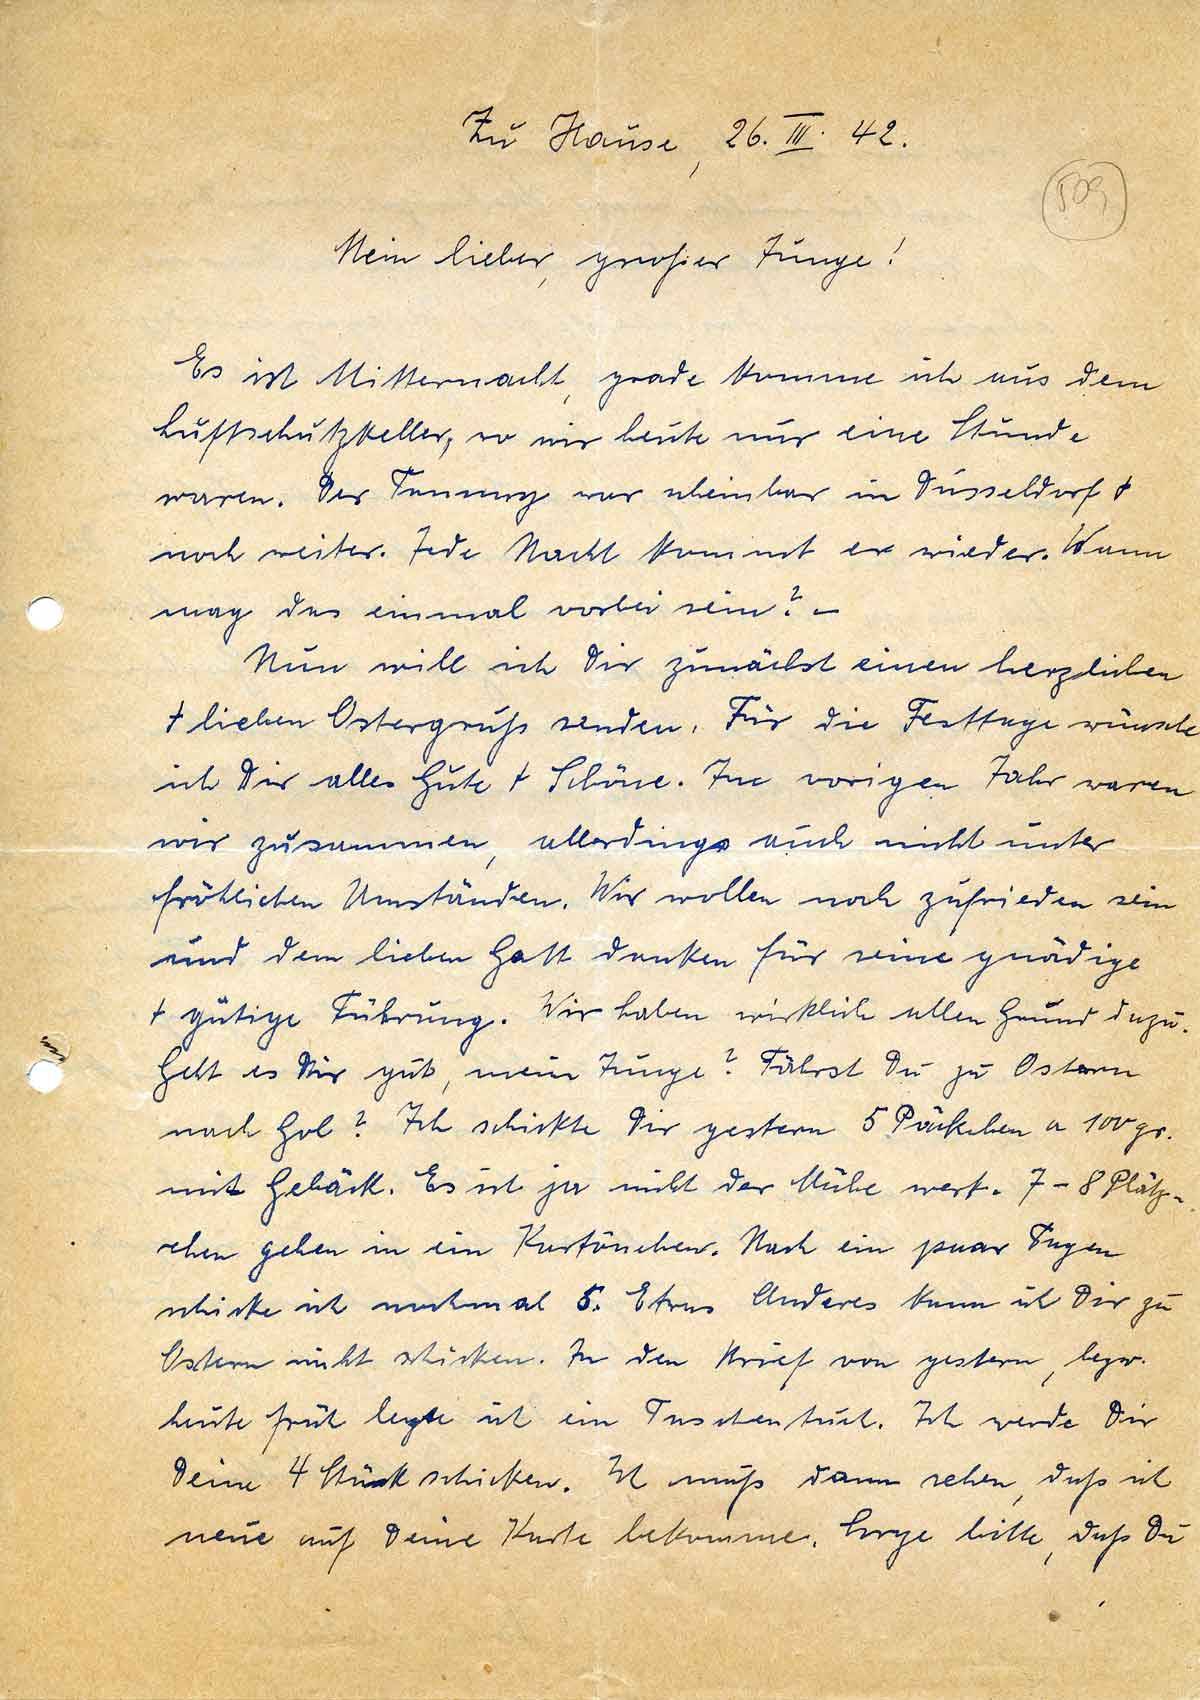 Zu Hause, 26. III. 42.
509
Mein lieber, großer Junge!
Es ist Mitternacht, grade komme ich aus dem
Luftschutzkeller, wo wir heute nur eine Stunde
waren. Der Tommy war scheinbar in Düsseldorf +
noch weiter. Jede Nacht kommt er wieder. Wann
mag das einmal vorbei sein? –
Nun will ich Dir zunächst einen herzlichen
+ lieben Ostergruß senden. Für die Festtage wünsche
ich Dir alles Gute + Schöne. Im vorigen Jahr waren
wir zusammen, allerdings auch nicht unter
fröhlichen Umständen. Wir wollen noch zufrieden sein
und dem lieben Gott danken für seine gnädige
+ gütige Führung. Wir haben wirklich allen Grund dazu.
Geht es Dir gut, mein Junge? Fährst Du zu Ostern
nach Gol? Ich schickte Dir gestern 5 Päckchen a 100 gr.
mit Gebäck. Es ist ja nicht der Mühe wert. 7 – 8 Plätz-
chen gehen in ein Kartönchen. Nach ein paar Tagen
schicke ich nochmal 5. Etwas Anderes kann ich Dir zu
Ostern nicht schicken. In den Brief von gestern, bezw.
heute früh legte ich ein Taschentuch. Ich werde Dir
Deine 4 Stück schicken. Ich muß dann sehen, daß ich
neue auf Deine Karte bekomme. Sorge bitte, daß Du